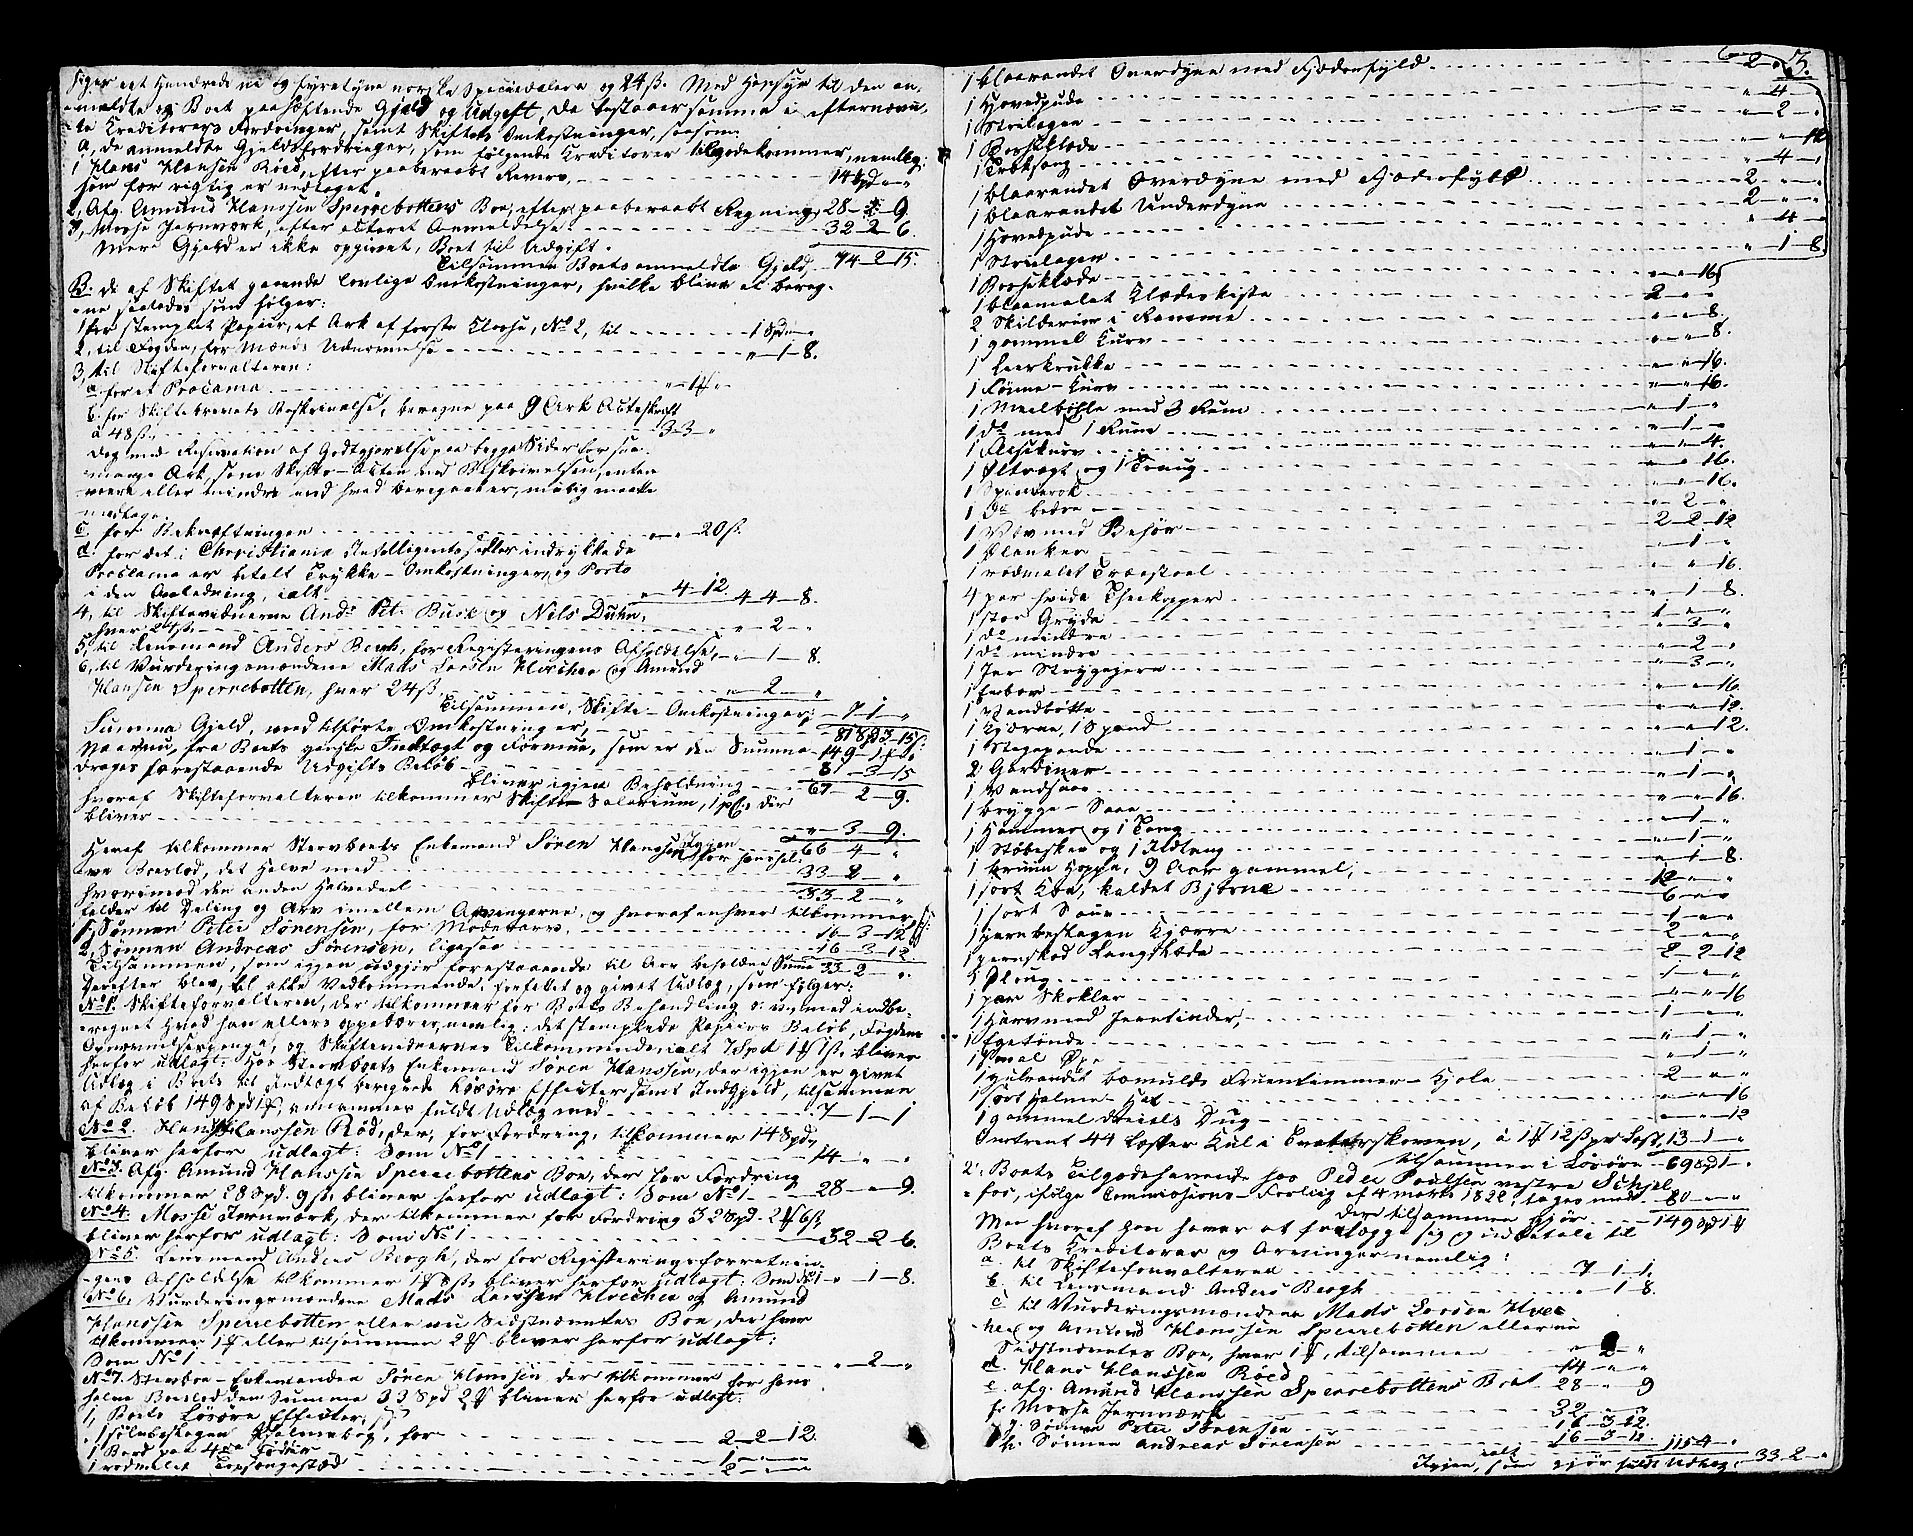 siger eet Hundrede ni og fyretyve norske Speciedaler og 24 ß. Med Hensyn til den an-
meldte og Boet paahæftende Gjeld og Udgift, da bestaaer samme i efternævn-
te Kreditorers Fordringer, samt Skiftets Omkostninger, saasom:
A, de anmeldte Gjelds fordringer, som følgende Creditorer tilgodekommer, nemlig:
1 Hans Hansen Röed, efter paaberaabt Revers, 14 Spd " "
som for rigtig er vedtaget.
2, Afg. Amund Hanssen Sperrebottens Boe, efter paaberaabt Regning, 28 - " - 9.
3, Mosse Jernværk, efter Anmeldelse 32 2 6.
Mere Gjeld er ikke opgivet, Boet til Udgift.
Tilsammen Boets anmeldte Gjeld, 74 - 2 - 15.
B. de af Skiftet gaaende lovlige Omkostninger, hvilke blive at bereg-
ne saaledes som følger:
1 for stemplet Papiir, et Ark af første Classe, No 2, til 1 Spd " "
2, til Fogden, for Mænds Udnævnelse " - 1 - 8.
3, til Skifteforvalteren:
a. for et Proclama " - 1 ß "
b. for Skiftebrevets Beskrivelse, beregne paa 9 Ark
à 48 ß. 3 - 3 - "
dog med Reservation af Godtgjørelse paa begge Sider for saa
mange Ark, som Skifte-Akten ved Beskrivelsen, enten
meere eller mindre end hvad beregnet er, maatte
medtage.
c. for Bekræftningen " - " - 20 ß.
d. for det i Christiania Intelligentssedler indrykkede
Proclama er betalt Trykke-Omkostninger og Porto
i den Anledning, ialt " - 4 - 12. 4 - 4 - 8.
4, til Skiftevidnerne And: Pet. Busk og Nils Duhn,
hver 24 ß. " - 2 - "
5, til Lensmand Anders Bergh, for Registeringens Afholdelse, " - 1 - 8.
6, til Vurderingsmændene Mads Larsen Hvecher og Amund
Hansen Sperrebotten, hver 24 ß " - 2 - "
Tilsammen, Skifte-Omkostninger, 7 - 1 - "
Summa Gjeld, med tilførte Omkostninger, 81 Spd 3 - 15 ß.
Naarnu, fra Boets ganske Indtægt og Formue, som er den Summa 149 - 1 "
drages forestaaende Udgifts Beløb 81 - 3 - 15
bliver igjen Beholdning 67 - 2 - 9.
hvoraf Skifteforvalteren tilkommer Skifte-Salarium, 1 pC, der
bliver " - 3 - 9.
Igjen 66 - 4 - "
Heraf tilkommer Stervboets Enkemand Sören Hanssen for hans hel-
ve Boeslod, det Halve med 33 - 2 - "
hvorimod den anden Halvedeel 33 - 2 - "
falder til Deling og Arv imellem Arvingerne, og hvoraf enhver tilkommer,
1, Sønnen Peter Sörensen, for Mödrearv, 16 - 3 - 12
2, Sønnen Andreas Sörensen, ligesaa 16 - 3 - 12.
Tilsammen, som igjen udgjör forestaaende til Arv beholdne Summa 33 - 2 - "
Derefter blev, til alle Vedkommende, forfattet og givet Udlæg, som følger:
No 1. Skifteforvalteren, der tilkommer for Boets Behandling med indbe-
regnet hvad han ellers oppebærer, nemlig: det stemplede Papiirs Beløb, Fogdens
Opnævnelsespenge, og Skiftevidnernes Tilkommende, ialt 7 Spd 1 ß, bliver
herfor udlagt: hos Stervboets Enkemand Sören Hanssen, der igjen er givet
Udlæg i Boets til Indtægt beregnede Løsøre Effecter samt Indgjeld, tilsammen
af Beløb 149 Spd 1, annammer fuldt Udlæg med 7 - 1 - 1
No 2. Hans Hanssen Röd, der, for Fordring, tilkommer 14 Spd,
bliver herfor udlagt: Som No 1 14 " "
No 3. Afg. Amund Hanssen Sperrebottens Boe, der for Fordring
tilkommer 28 Spd. 9 ß. bliver herfor udlagt: Som No 1 28 - " - 9.
No 4. Mosse Jernværk, der tilkommer for Fordring 32 Spd - 2 6 ß,
bliver herfor udlagt: Som No 1 32 - 2 - 6.
No 5. Lensmand Anders Bergh, der for Registeringsforretnin-
gens Afholdelse tilkommer 1 8 ß bliver herfor udlagt: Som No 1 " - 1 - 8.
No 6. Vurderingsmændene Mads Larssen Hvecher og Amund
Hanssen Sperrebotten eller nu Sidstnævntes Boe, der hver
tilkommer 1 eller tilsammen 2 bliver herfor udlagt:
Som No 1 " - 2 - "
No 7. Stervboe-Enkemanden Sören Hanssen, der tilkommer for hans
halve Boeslod den Summa 33 Spd 2 bliver herfor udlagt:
1, Boets Løsøre Effecter,
1 sølvbeslagen Psalmebog, for 2 - 2 - 12.
1 Bord paa 4re Födder 1 - " - "
1 rødmalet Topsengested 2 - " - "
1 blaarandet Overdyne med Fjederfyld. 2 - " - "
1 Hovedpude " - 4 - "
1 Strielagen " - 2 - "
1 Vorseklæde " - " - 16
1 Trækseng " - 4 - "
1 blaarandet Overdyne med Fjederfyld 2 - " - "
1 blaarandet Underdyne 2 - " - "
1 Hovedpude " - 4 - "
1 Strielagen " - 1 - 8.
1 Vorseklæde " - " - 16
1 blaamalet Klædeskiste 2 - " - "
2 Skilderier i Ramme " - " - 8.
1 gammel Kurv " - " - 8.
1 Leerkrukke " - " - 16.
1 Kurv " - " - 16.
1 Meelbøtte med 3 Rum " - 1 - "
1 do med 1 Rum " - 1 - "
1 Kurv " - " - 4.
1 og 1 Traug " - " - 16.
1 Spinderok " - " - 16.
1 do bedre " - 2 - "
1 Væv med Behør 2 - 2 - 12
1 blanker " - 1 - "
1 rødmalet Træestoel " - " - 16.
4 par hvide Theekopper " - 1 - 8
1 stor Gryde 1 - " - "
1 do mindre " - 3 - "
1 do mindre " - 2 - "
1 Par Strygejern " - 3 - "
1 " - " - 16.
1 Vandbøtte " - " - 12.
1 Kjærne, 1 Spand " - " - 12.
1 Stegepande " - 1 - "
2 Gardiner " - 1 - "
1 Vandsaae " - " - 16.
1 brygge-Saae " - 1 - "
1 Hammer og 1 Tang " - 1 - "
1 Støbeskee og 1 Ildtang " - 1 - 8.
1 bruun Hoppe, 9 Aar gammel, 12 - " - "
1 sort Koe, kaldet Bjørne 6 - " - "
1 sort Sau 1 - " - "
1 Jernbeslagen Kjærre 2 - " - "
1 jernskod Langslæde 2 - 2 - 12
1 Ploug 1 - " - "
1 par Skokler " - " - 16
1 Harv med Jerntinder, 1 - " - "
1 Egetønde " - 1 - "
1 smal Øxe " - 1 - "
1 guulrandet bomulds Fruentimmer-Kjole 2 - " - "
1 sort Halm-Hat " - " - 16
1 gammel Dreiels Dug " - " - 12
Omtrent 44 Læster Kul i Træterskoven, à 1 12 ß pr Læst, 13 - 1 - "
tilsammen i Løsøre 69 Spd 1 "
2. Boets Tilgodehavende hos Peder Poulsen vestre Schjel-
fos, ifølge Commissions-Forliig af 4 Marts 1822, tages med 80 - " - "
Der tilsammen gjør 149 Spd 1
Men hvoraf han haver at fralægge sig og udbetale til
Boets Kreditorer og Arvinger nemlig:
a. til Skifteforvalteren 7 - 1 - 1.
b. til Lensmand Anders Bergh " - 1 - 8.
c. til Vurderingsmændene Mads Larsen Hvec-
her og Amund Hanssen Sperrebotten eller nu
Sidstnævntes Boe, hver 1, tilsammen " - 2 - "
d. Hans Hanssen Röed 14 - " - "
e. afg. Amund Hanssen Sperrebottens Boe 28 - " - 9
f. Mosse Jernværk 32
g. Sønnen Peter Sörensen 16 - 3 - 12.
h. Sønnen Andreas Sörensen 16 - 3 - 12.
ialt 115 4 "
Igjen, som gjør fuldt Udlæg, 33 2 "